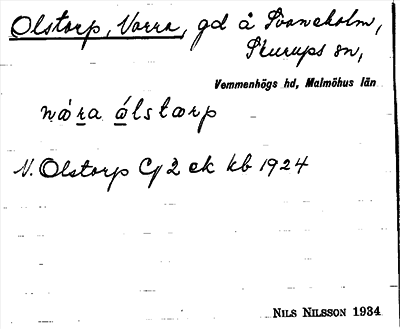 Olstorp, Norra, gd å Svaneholm,
Skurups sn,
Vemmenhögs hd, Malmöhus län
nǽra ålstorp
N. Olstorp Cg 2 ek kb 1924
NILS NILSSON 1934